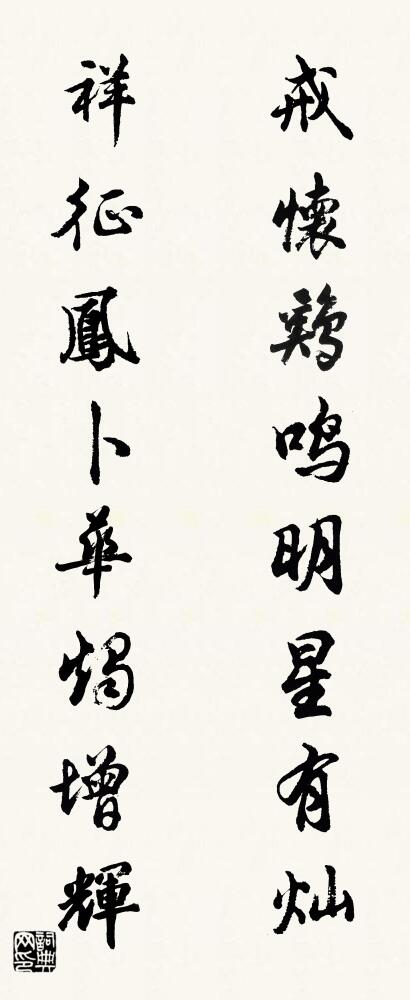 戒懷鷄鳴明星有灿
祥征鳳卜華燭增輝
詞典网印